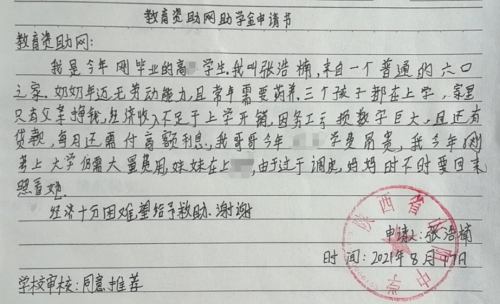 教育资助网助学金申请书
教育资助网:
我是今年刚毕业的高 学生,我叫张浩楠,来自一个普通的六口
之家.奶奶年迈无劳动能力,且常年需要药养.三个孩子都在上学,家里
只有父亲挣钱,经济收入不足于上学开销,因务工亏损数字巨大,且还有
贷款,每月还需付高额利息,我哥哥今年 学费昂贵,我今年刚
考上大学仍需大量费用,妹妹在上 ,由于过于调皮,妈妈时不时要回来
照看她.
经济十分困难,望给予救助.谢谢
申请人:张浩楠
时间:2021年8月17日
陕西省 中学
学校审核:同意推荐